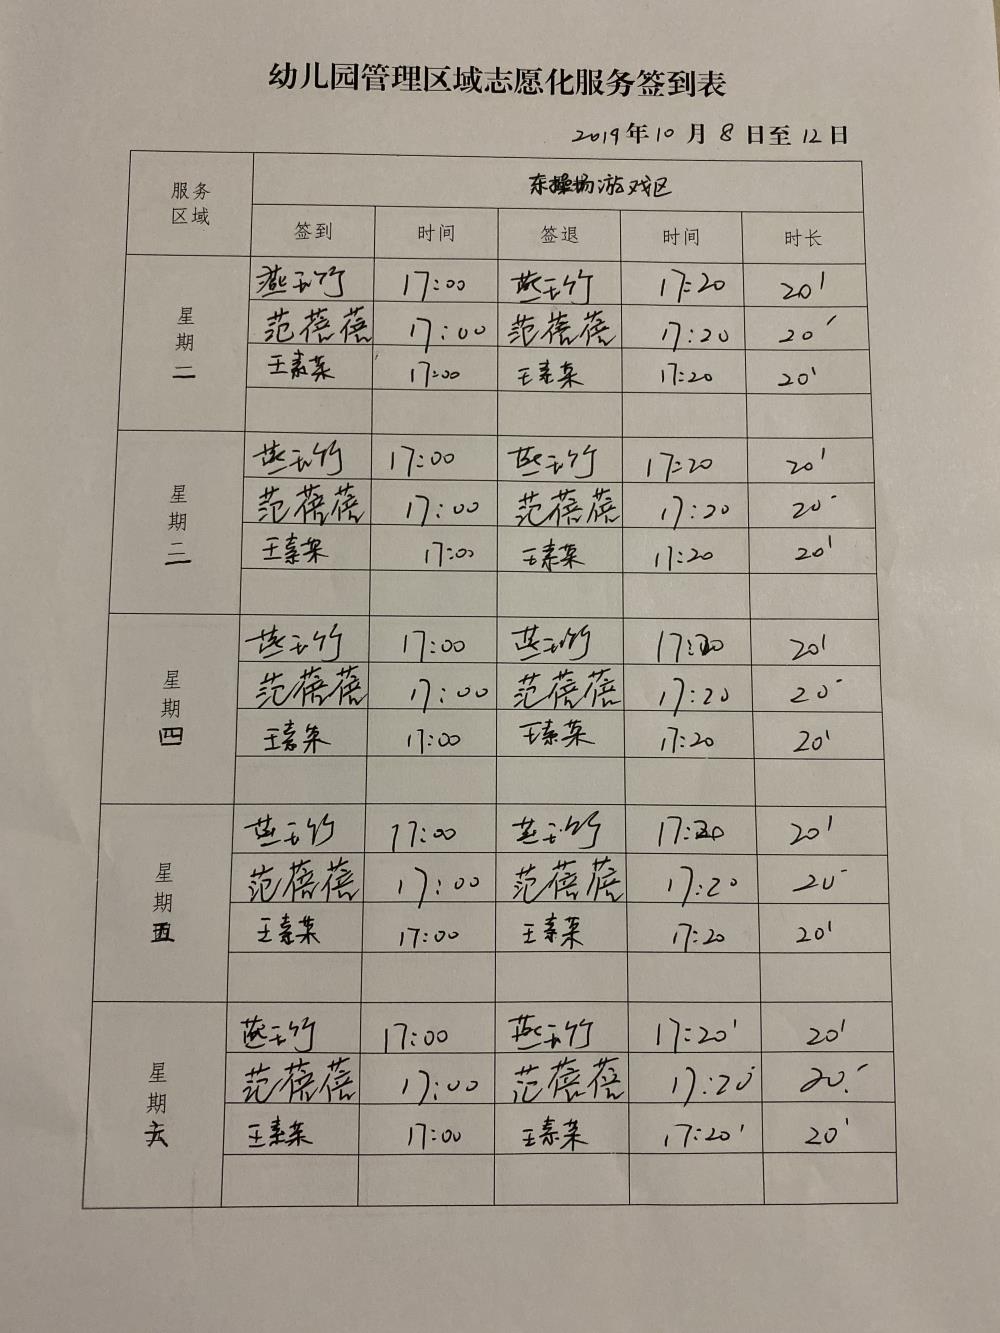 幼儿园管理区域志愿化服务签到表
2019年10月8日至12日
服务区域 东操场游戏区
签到 时间 签退 时间 时长
星期二
燕玉竹 17:00 燕玉竹 17:20 20'
范蓓蓓 17:00 范蓓蓓 17:20 20'
王素菜 17:00 王素菜 17:20 20'
星期三
燕玉竹 17:00 燕玉竹 17:20 20'
范蓓蓓 17:00 范蓓蓓 17:20 20'
王素菜 17:00 王素菜 17:20 20'
星期四
燕玉竹 17:00 燕玉竹 17:20 20'
范蓓蓓 17:00 范蓓蓓 17:20 20'
王素菜 17:00 王素菜 17:20 20'
星期五
燕玉竹 17:00 燕玉竹 17:20 20'
范蓓蓓 17:00 范蓓蓓 17:20 20'
王素菜 17:00 王素菜 17:20 20'
星期六
燕玉竹 17:00 燕玉竹 17:20' 20'
范蓓蓓 17:00 范蓓蓓 17:20' 20'
王素菜 17:00 王素菜 17:20' 20'